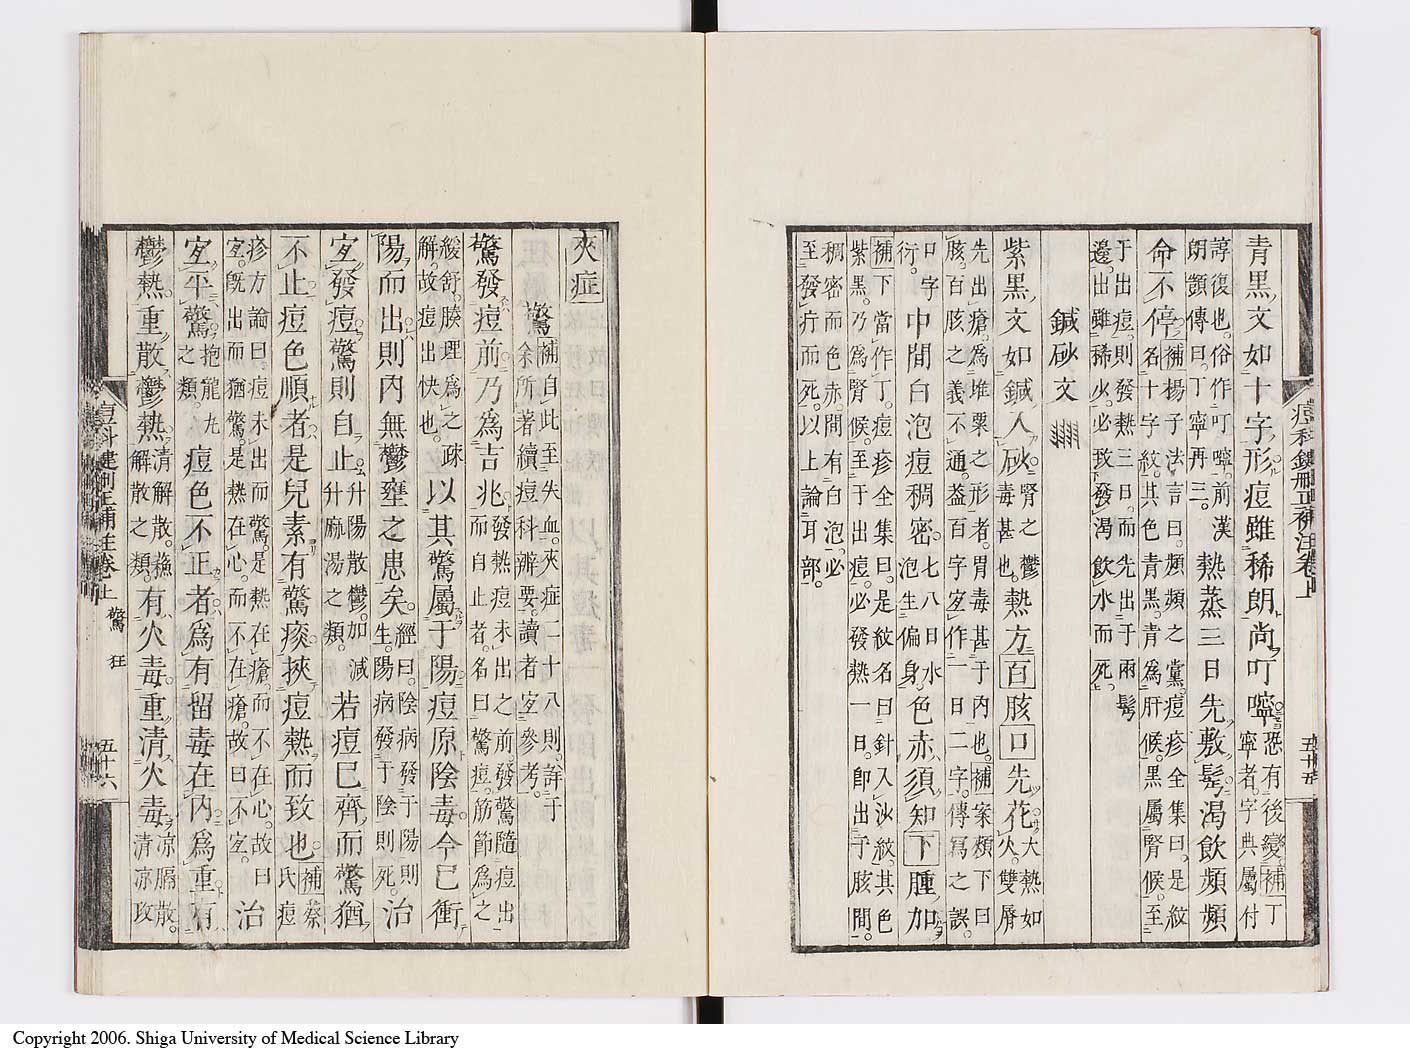 青黒文如十字形痘雖稀朗尚叮嚀恐有後變補丁
寧者字典屬付
諄復也俗作叮嚀前漢
朗顗傳曰丁寧再三熱蒸三日先敷髩渇飲頻頻
命不停補楊子法言曰頻頻之黨痘疹全集曰是紋
名十字紋其色青黒青爲肝候黒屬腎候至
于出痘則發熱三日而先出于兩髩
邊出雖稀火必致發渇飲水而死
鍼砂文
紫黒文如鍼入砂腎之鬱
毒甚也熱方百胲口先花火大熱如
雙脣
先出瘡爲堆粟之形者胃毒甚于内也補案頻下曰
胲百胲之義不通葢百字宐作一日二字傳寫之誤
口字
衍中間白泡痘稠密七八日水
泡生徧身色赤須知下腫加
補下當作丁痘疹全集曰是紋名曰針入沙紋其色
紫黒乃爲腎候至于出痘必發熱一日卽出于胲間
稠密而色赤間有白泡必
至發疔而死以上論耳部
痘科鍵刪正補注卷上
五十五
夾症
驚補自此至失血夾症二十八則詳于
余所著續痘科辨要讀者宐參考
驚發痘前乃爲吉兆發熱痘未出之前發驚隨痘出
而自止者名曰驚痘筋節爲之
緩舒腠理爲之疎
解故痘出快也以其驚屬于陽痘原陰毒今已衝
陽而出則内無鬱壅之患矣經曰陰病發于陽則
生陽病發于陰則死治
宐發痘驚則自止升陽散鬱加減
升麻湯之類若痘已齊而驚猶
不止痘色順者是兒素有驚痰挾痘熱而致也補蔡
氏痘
疹方論曰痘未出而驚是熱在瘡而不在心故曰
宐旣出而猶驚是熱在心而不在瘡故曰不宐治
宐平驚抱龍丸
之類痘色不正者爲有留毒在内爲重有
鬱熱重散鬱熱清解散蓀
解散之類有火毒重清火毒凉膈散
清凉攻
痘科鍵刪正補注卷上
驚 狂
五十六
Copyright 2006. Shiga University of Medical Science Library